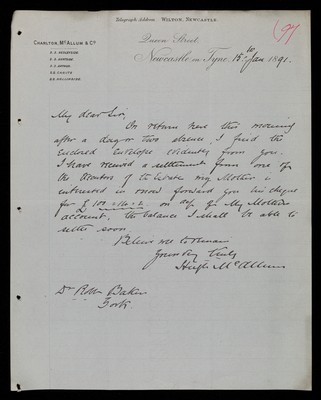 Telegraph Address WILTON, NEWCASTLE
99
CHARLTON, MCALLUM & Co
Queen Street,
Newcastle on Tyne, 15th Jan 1891.
My dear Sir,
On return here this morning
after a day or two absence, I find the
enclosed envelope evidently from you.
I have received a settlement from one of
the of the Estate my Mother is
interested in & now forward you his cheque
for £ 100 on a/c of My Mothers
account, the balance I shall be able to
settle soon
Believe me to remain
Yours very truly
Hugh McAllum
Dr Robt Baker
York